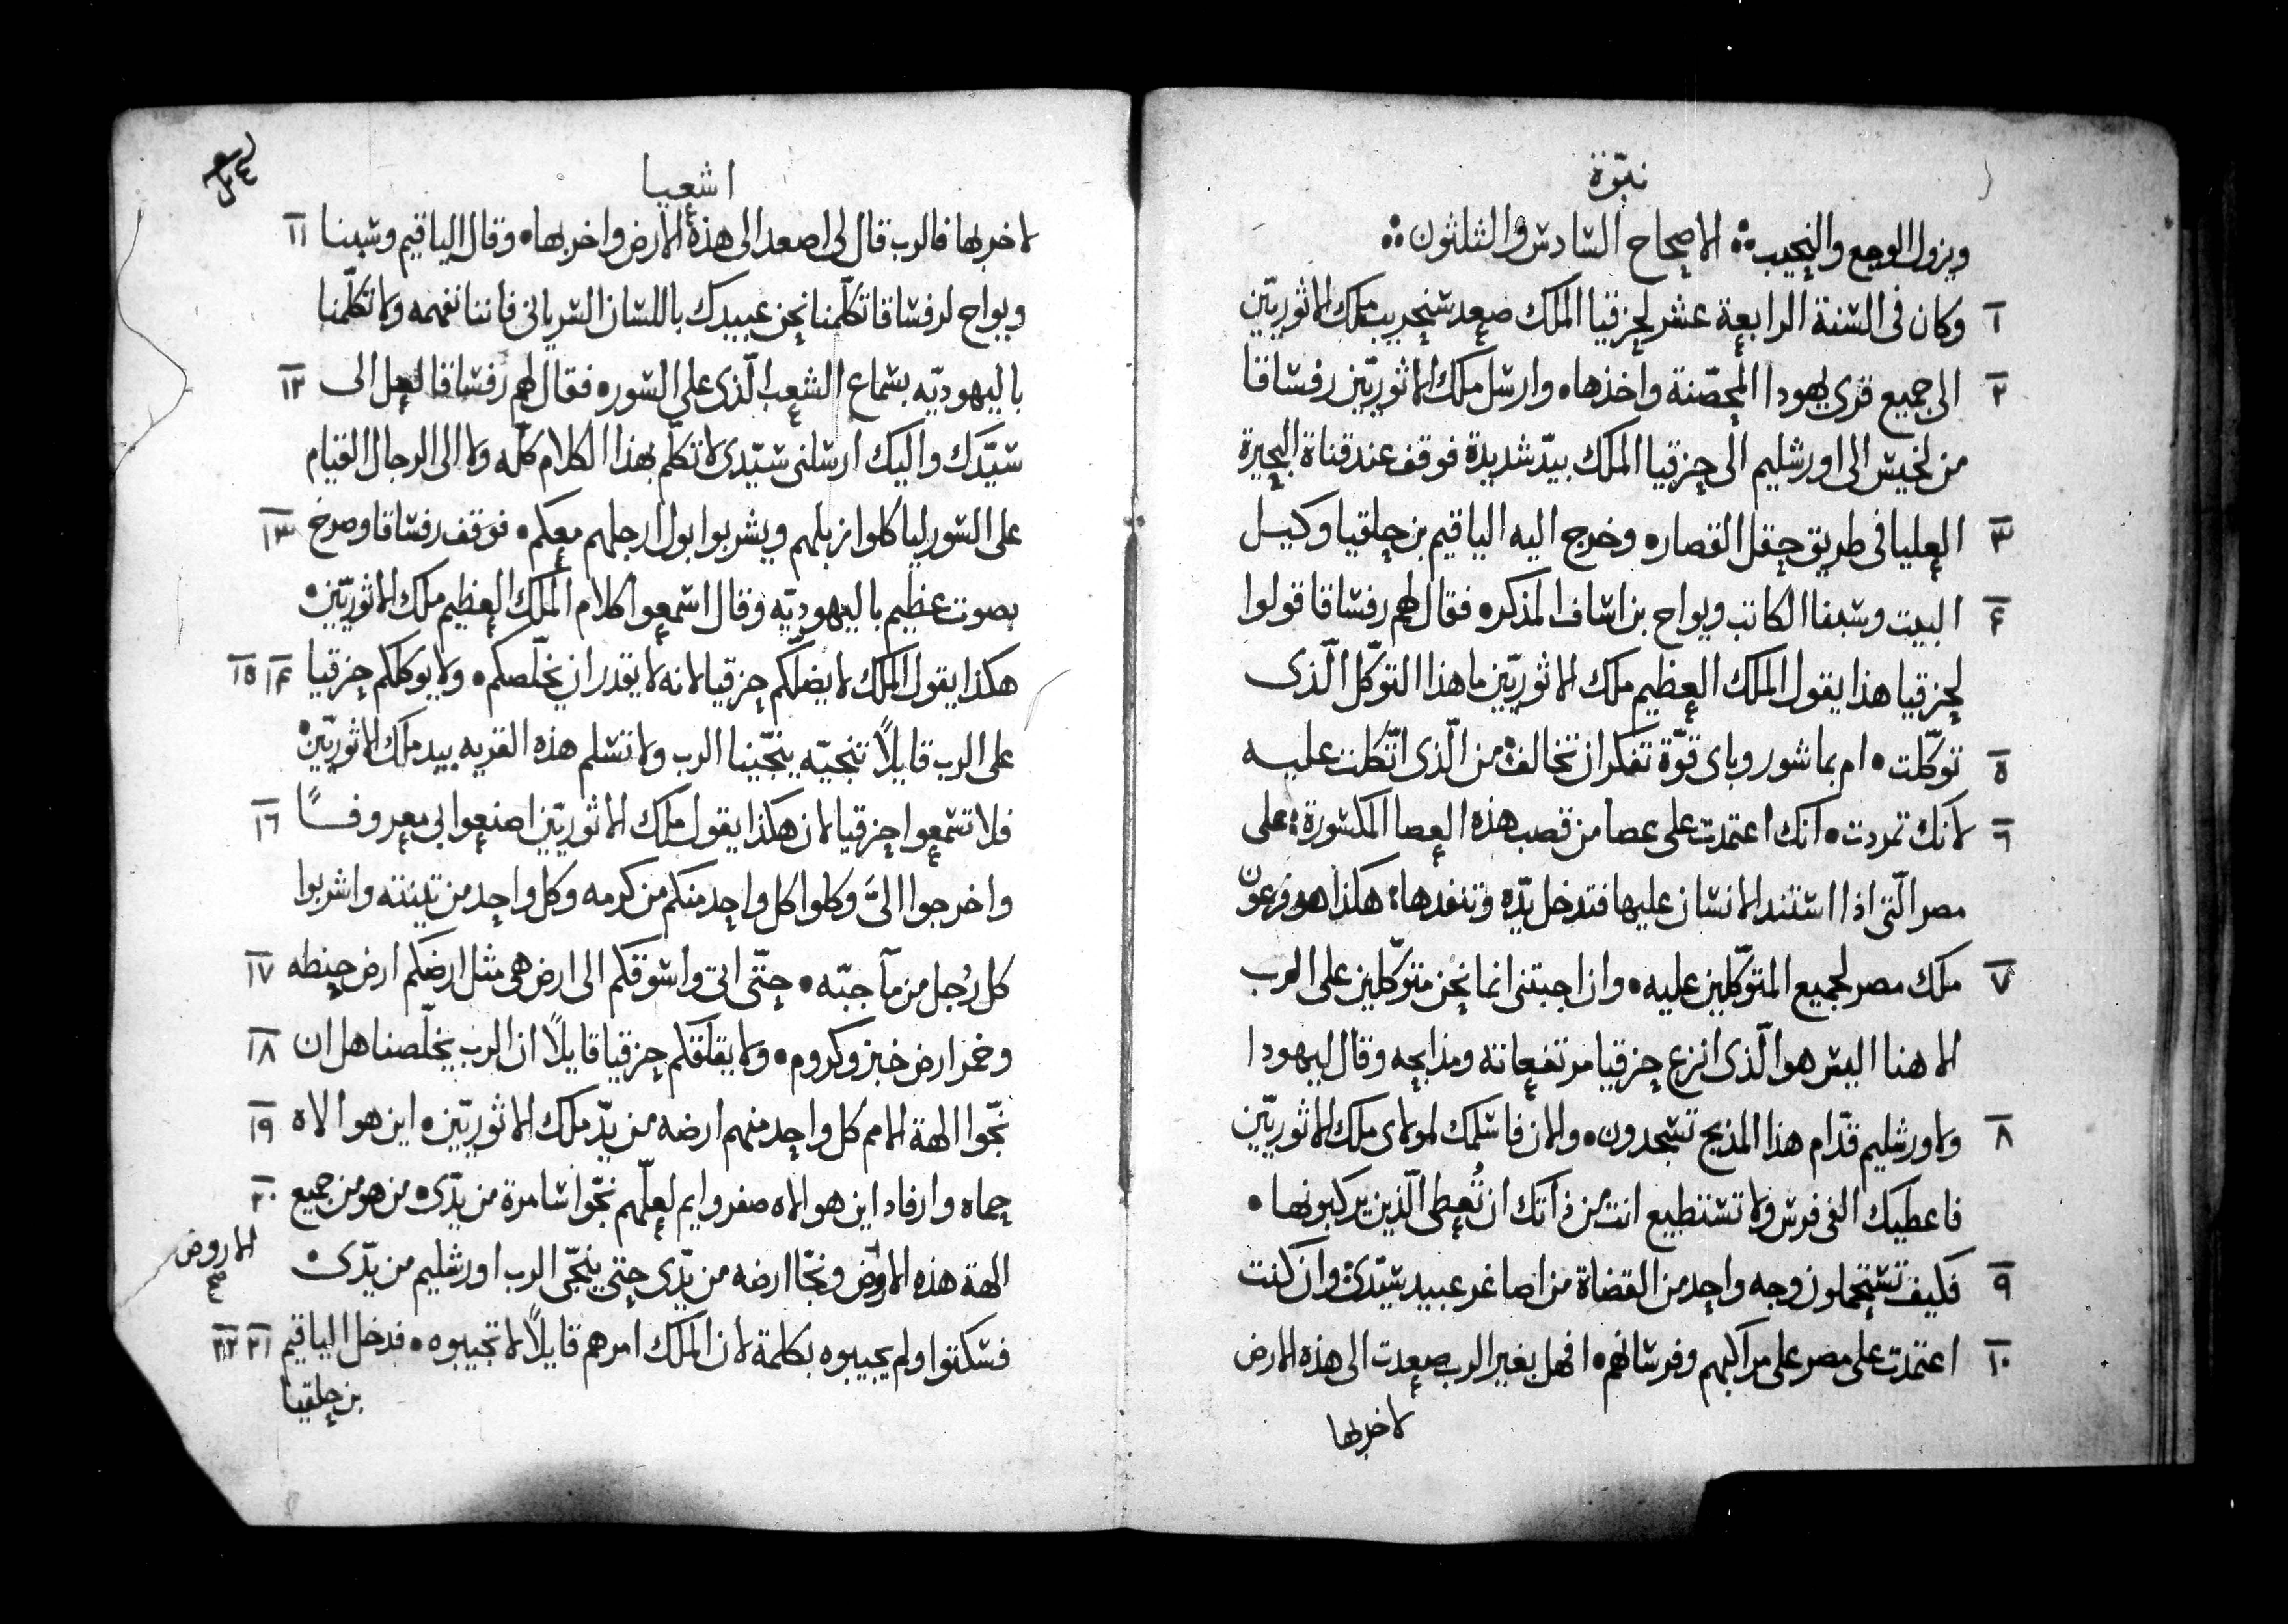 نبوّة
ويزول الوجع والنحيب ؞ الاصحاح السادس والثلثون ؞
١ وكان فى السنة الرابعة عشر لحزقيا الملك صعد سنحريب ملك الاثوريّين
٢ الى جميع قرى يهودا المحصّنة واخذها • وارسل ملك الاثوريّين رفساقا
من لخيس الى اورشليم الى حزقيا الملك بيدّ شديدة فوقف عند قناة البحيرة
٣ العليا فى طريق حقل القصار • وخرج اليه الياقيم بن حلقيا وكيل
۴ البيت وسبنا الكاتب ويواح بن اساف المذكر • فقال لهم رفساقا قولوا
لحزقيا هذا يقول الملك العظيم ملك الاثوريّين ما هذا التوكّل الّذى
٥ توكّلت • ام بما شور وباى قوّة تفكر ان تخالف • من الّذى اتّكلت عليه
٦ لانك تمردت • انك اعتمدت على عصا من قصب هذه العصا المكسورة على
مصر الّتى اذا استند الانسان عليها فتدخل يدّه وتنفدها هكذا هو فرعون
٧ ملك مصر لجميع المتوكّلين عليه • وان اجبتنى انما نحن متوكّلين على الرب
الاهنا اليس هو الّذى انزع حزقيا مرتفعاته ومذابحه وقال ليهودا
٨ ولاورشليم قدّام هذا المذبح تسجدون • والان فاسلمك لمولاى ملك الاثوريّين
فاعطيك الفى فرس ولا تستطيع انت من ذاتك ان تُعطى الّذين يركبونها •
٩ فكيف تستحملون وجه واحد من القضاة من اصاغر عبيد سيّدى وان كنت
١٠ اعتمدت على مصر على مراكبهم وفرسانهم • افهل بغير الرب صعدت الى هذه الارض
لاخربها
اشعيا
لاخربها فالرب قال لى اصعد الى هذه الارض واخربها • وقال الياقيم وسبنا ١١
ويواح لرفساقا تكلّمنا نحن عبيدك باللسان السريانى فاننا نفهمه ولا تكلّمنا
باليهوديّه بسماع الشعب الّذى على السور • فقال لهم رفساقا لعل الى ١٢
سيّدك واليك ارسلنى سيّدى لاتكلّم بهذا الكلام كلّه ولا الى الرجال القيام
على السور لياكلوا زبلهم ويشربوا بول ارجلهم معكم • فوقف رفساقا وصرخ ١٣
بصوت عظيم باليهوديّه وقال اسمعوا كلام الملك العظيم ملك الاثوريّين •
هكذا يقول الملك لا يضلّكم حزقيا لانه لا يقدر ان يخلّصكم • ولا يوكلكم حزقيا ١۴ ١٥
على الرب قايلاً تنجيّه ينجّينا الرب ولا تسلم هذه القريه بيد ملك الاثوريّين •
فلا تسمعوا حزقيا لان هكذا يقول ملك الاثوريّين اصنعوا بى معروفاً ١٦
واخرجوا الىّ وكلوا كل واحد منكم من كرمه وكل واحد من تينته واشربوا
كل رُجل من مآ جبّه • حتّى اتى واسوقكم الى ارض هى مثل ارضكم ارض حنطه ١٧
وخمر ارض خبز وكروم • ولا يقلقكم حزقيا قايلاً ان الرب يخلّصنا هل ان ١٨
نجّوا الهة الامم كل واحد منهم ارضه من يدّ ملك الاثوريّين • اين هو الاه ١٩
حماه وارفاد اين هو الاه صفروايم لعلّهم نجّوا سامرة من يدّى • من هو من جميع ٢٠
الهة هذه الاروض ونجّا ارضه من يدّى حتى ينجّى الرب اورشليم من يدّى •
الاروض
صح
فسكتوا ولم يجيبوه بكلمة لان الملك امرهم قايلاً لا تجيبوه • فدخل الياقيم ٢١ ٢٢
بن حلقيا